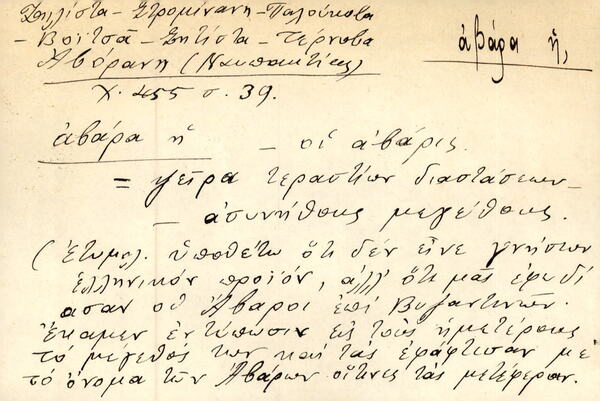 Σελλίστα - Στρομίνιανη - Παλούκοβα
- Βοϊτσᾶ - Σητίστα - Τέρνοβα
Ἀβόρανη (Ναυπακτίας)
ἀβάρα ἡ,
χ. 455 σ. 39.
ἀβάρα ἡ - οἱ ἀβάρις.
= ψεῖρα τεραστίων διαστάσεων -
- ἀσυνήθους μεγέθους.
(Ἐτυμολ. ὑποθέτω ὅτι δέν εἶνε γνήσιον
ἑλληνικόν προϊόν, ἀλλ' ὅτι μᾶς ἐφωδί
ασαν οἱ Ἄβαροι ἐπί Βυζαντινῶν.
Ἔκαμεν ἐντύπωσιν εἰς τούς ἡμετέρους
τό μέγεθός των καί τάς ἐβάφτισαν μέ
τό ὄνομα τῶν Ἀβάρων οἵτινες τάς μετέφερον.